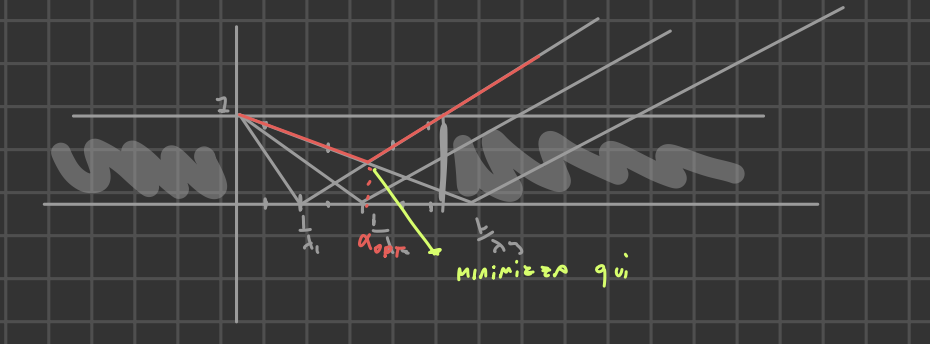 1
1
λ₁
1
α opt
1/λ
MINIMIZZA QUI